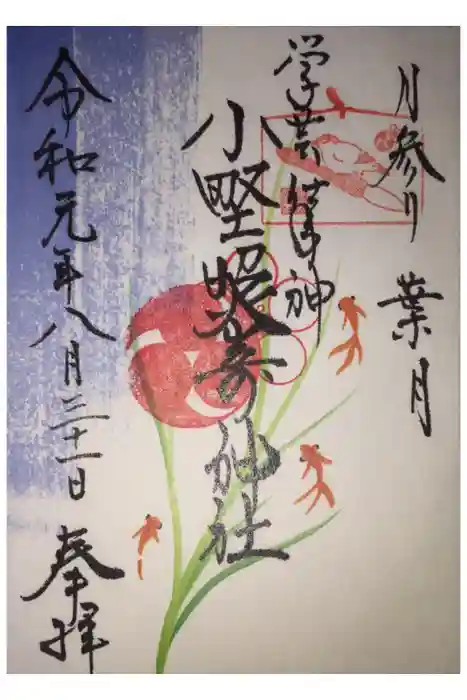 月参り 葉月
学芸
小野照崎神社
令和元年八月三十一日 奉拝